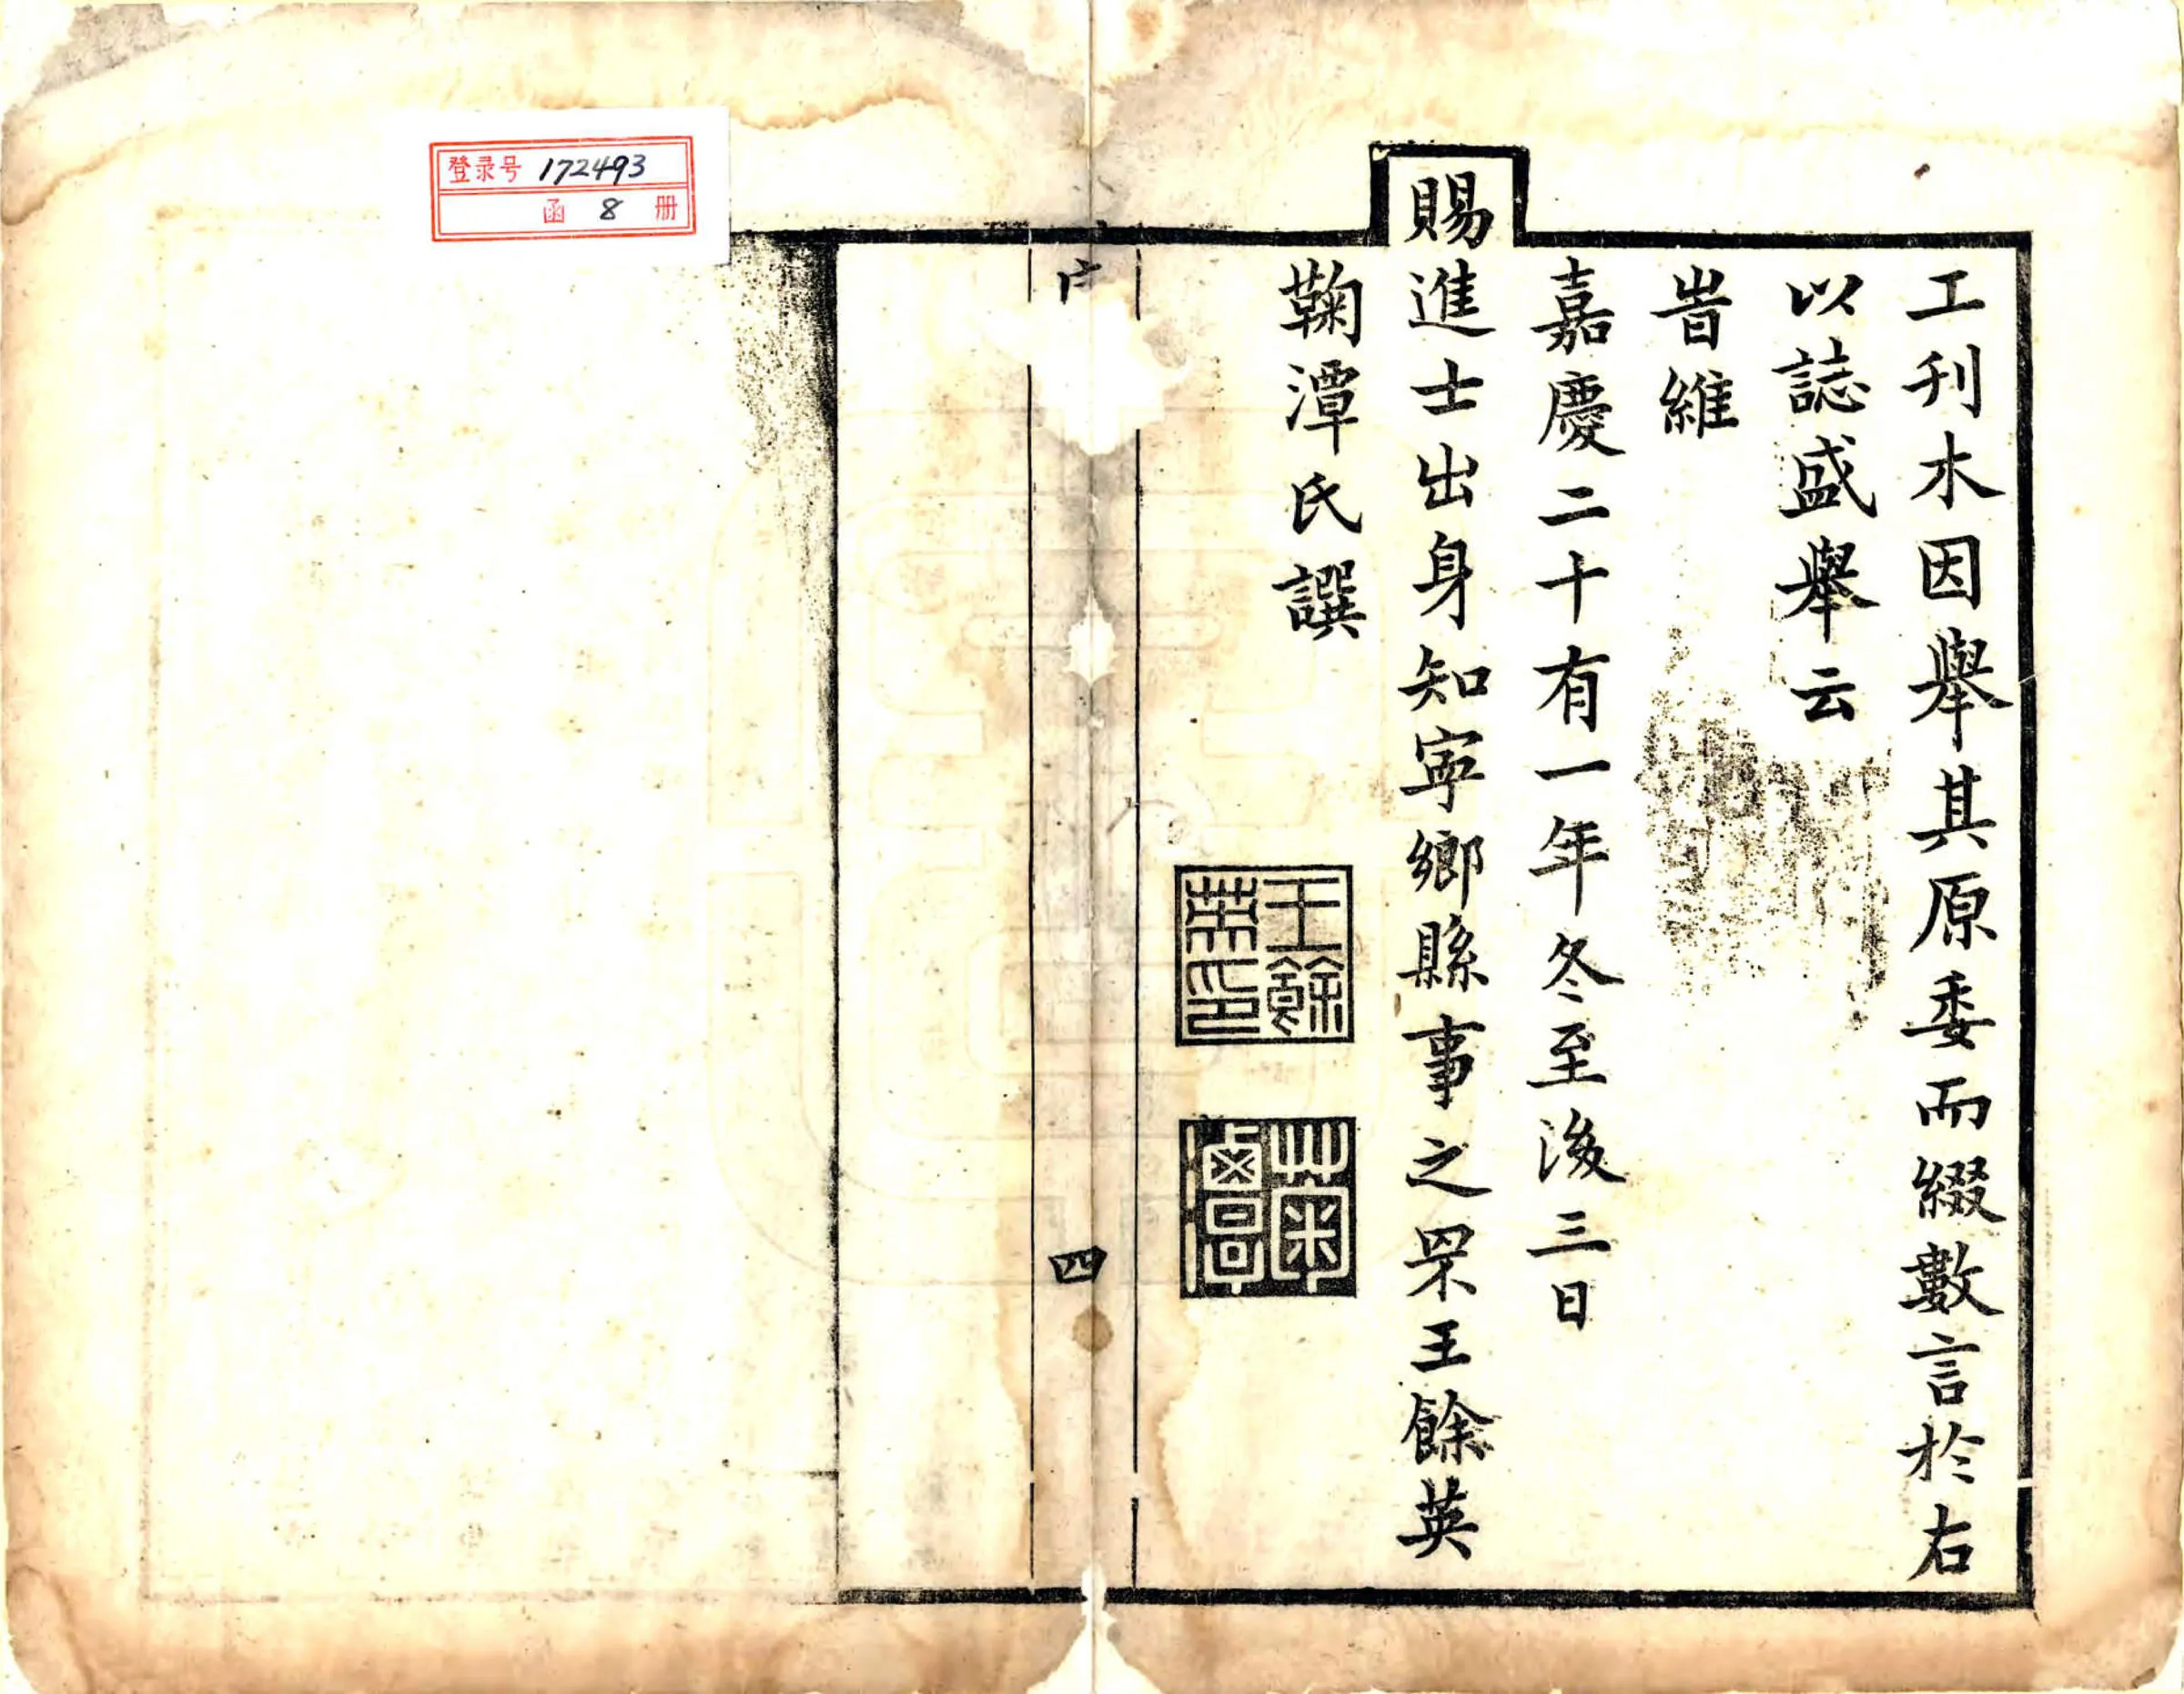 工刋木因舉其原委而綴數言於右
以誌盛舉云
旹維
嘉慶二十有一年冬至後三日
賜進士出身知寧鄉縣事之罘王餘英
鞠潭氏譔
王餘英印
菊潭
序
四
登录号 172493
函 8 册